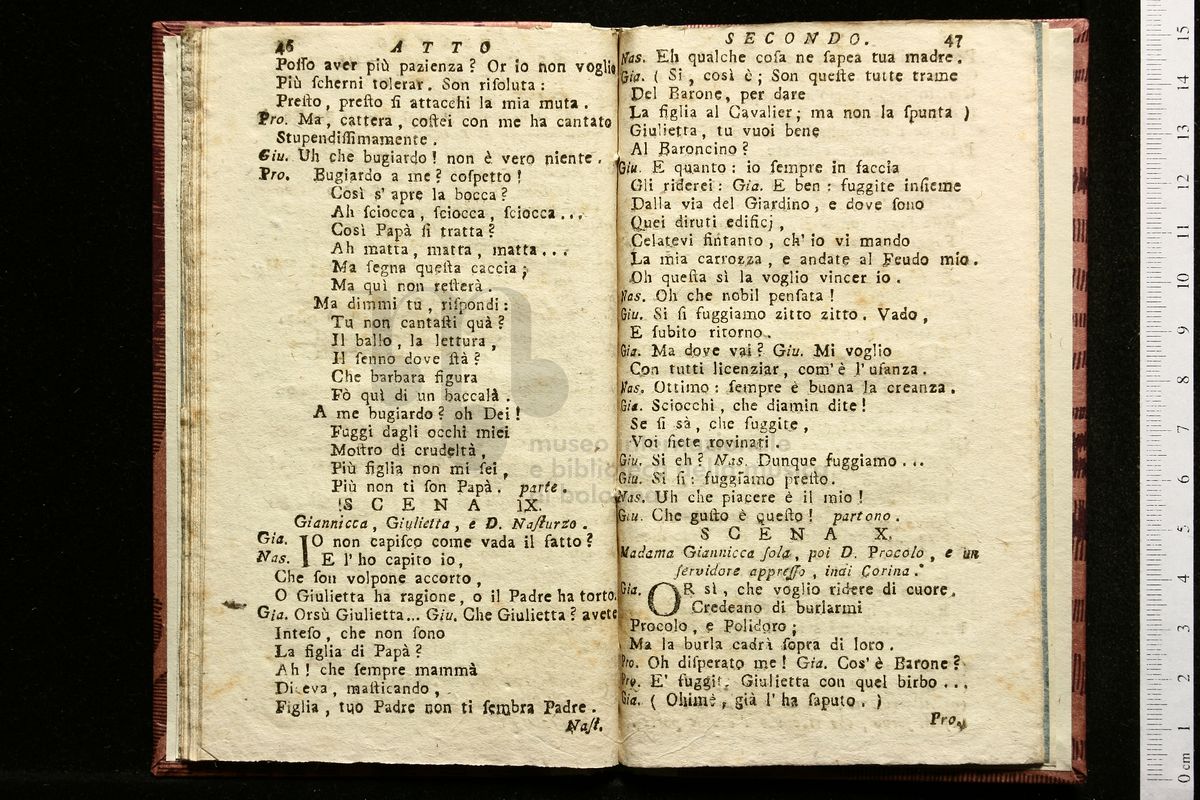 46 ATTO
Poſſo aver più pazienza? Or io non voglio
Più ſcherni tolerar. Son riſoluta:
Preſto, preſto ſi attacchi la mia muta.
Pro. Ma, cattera, coſtei con me ha cantato
Stupendiſſimamente.
Giu. Uh che bugiardo! non è vero niente.
Pro. Bugiardo a me? coſpetto!
Così s'apre la bocca?
Ah ſciocca, ſciocca, ſciocca...
Così Papà ſi tratta?
Ah matta, matta, matta...
Ma ſegna queſta caccia;
Ma quì non reſterà.
Ma dimmi tu, riſpondi:
Tu non cantaſti quà?
Il ballo, la lettura,
Il ſenno dove ſtà?
Che barbara figura
Fò quì di un baccalà.
A me bugiardo? oh Dei!
Fuggi dagli occhi miei
Moſtro di crudeltà,
Più figlia non mi ſei,
Più non ti ſon Papà. parte.
SCENA IX.
Giannicca, Giulietta, e D. Naſturzo.
Gia. IO non capiſco come vada il fatto?
Nas. E l'ho capito io,
Che ſon volpone accorto,
O Giulietta ha ragione, o il Padre ha torto.
Gia. Orsù Giulietta... Giu. Che Giulietta? avete
Inteſo, che non ſono
La figlia di Papà?
Ah! che ſempre mammà
Diceva, maſticando,
Figlia, tuo Padre non ti ſembra Padre.
Naſt.
SECONDO. 47
Nas. Eh qualche coſa ne ſapea tua madre.
Gia. (Si, così è; Son queſte tutte trame
Del Barone, per dare
La figlia al Cavalier; ma non la ſpunta)
Giulietta, tu vuoi bene
Al Baroncino?
Giu. E quanto: io ſempre in faccia
Gli riderei: Gia. E ben: fuggite inſieme
Dalla via del Giardino, e dove ſono
Quei diruti edificj,
Celatevi fintanto, ch'io vi mando
La mia carrozza, e andate al Feudo mio.
Oh queſta sì la voglio vincer io.
Nas. Oh che nobil penſata!
Giu. Si ſi fuggiamo zitto zitto. Vado,
E ſubito ritorno.
Gia. Ma dove vai? Giu. Mi voglio
Con tutti licenziar, com'è l'uſanza.
Nas. Ottimo: ſempre è buona la creanza.
Gia. Sciocchi, che diamin dite!
Se ſi sà, che fuggite,
Voi ſiete rovinati.
Giu. Si eh? Nas. Dunque fuggiamo...
Giu. Si ſi: fuggiamo preſto.
Nas. Uh che piacere è il mio!
Giu. Che guſto è queſto! partono.
SCENA X.
Madama Giannicca ſola, poi D. Procolo, e un
ſervidore appreſſo, indi Corina.
Gia. OR sì, che voglio ridere di cuore.
Credeano di burlarmi
Procolo, e Polidoro;
Ma la burla cadrà ſopra di loro.
Pro. Oh diſperato me! Gia. Cos'è Barone?
Pro. E' fuggita Giulietta con quel birbo...
Gia. (Ohimè, già l'ha ſaputo.)
Pro.